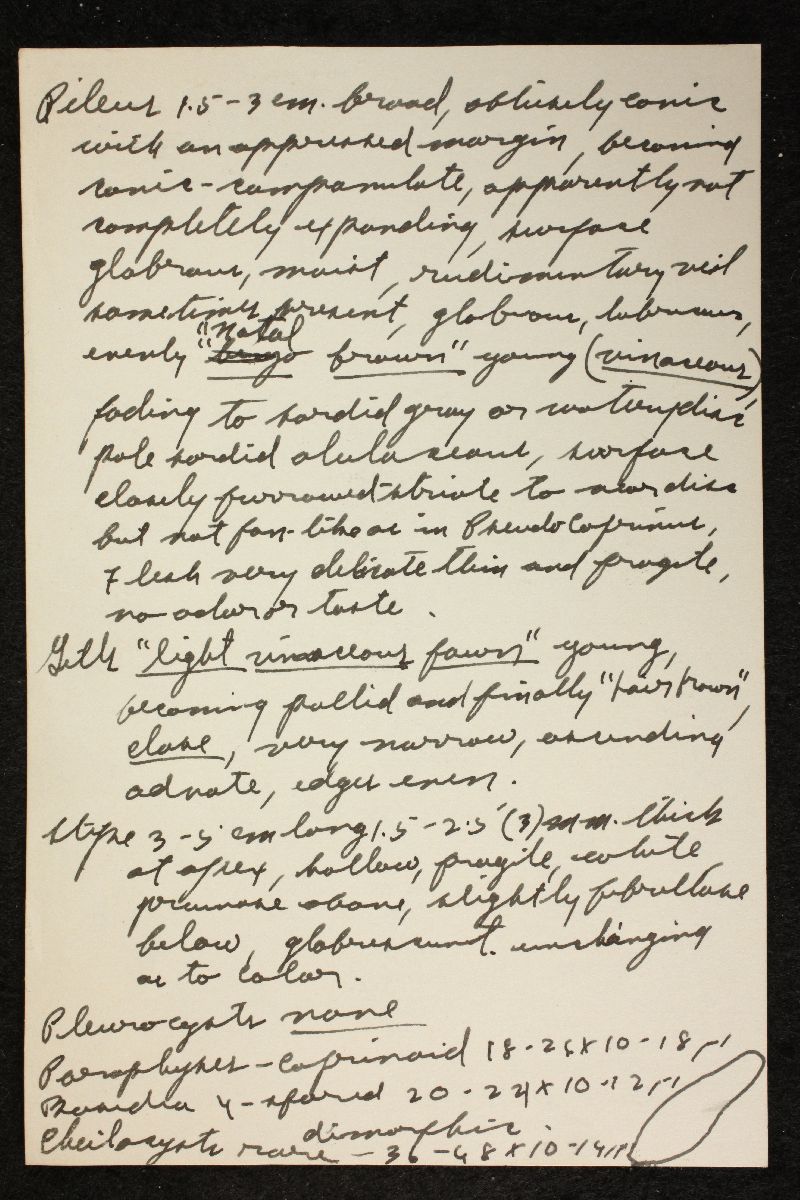 Pileus 1.5 - 3 cm. broad, obtusely conic
with an appressed margin, becoming
conic-campanulate, apparently not
completely expanding, surface
glabrous, moist, rudimentary veil
sometimes present, glabrous, lubricous,
"Natal
evenly " brown" young (vinaceous)
fading to sordid gray or watery disc
pale sordid alutaceous, surface
closely furrowed-striate to near disc
but not fan-like as in PseudoCoprinus,
Flesh very delicate thin and fragile,
no odor or taste.
Gills "light vinaceous fawn" young,
becoming pallid and finally brown",
close, very narrow, ascending
adnate, edges even.
Stipe 3 - 5 cm long 1.5 - 2.5 (3) mm. thick
at apex, hollow, fragile, white
pruinose above, slightly fibrillose
below, glabrescent. unchanging
as to color.
Pleurocysts none
Paraphyses - coprinoid 18 - 26 x 10 - 18 µ
Basidia 4-spored 20 - 24 x 10-12 µ
dimorphic.
Cheilocysts rare - 36 - 48 x 10-14 µ